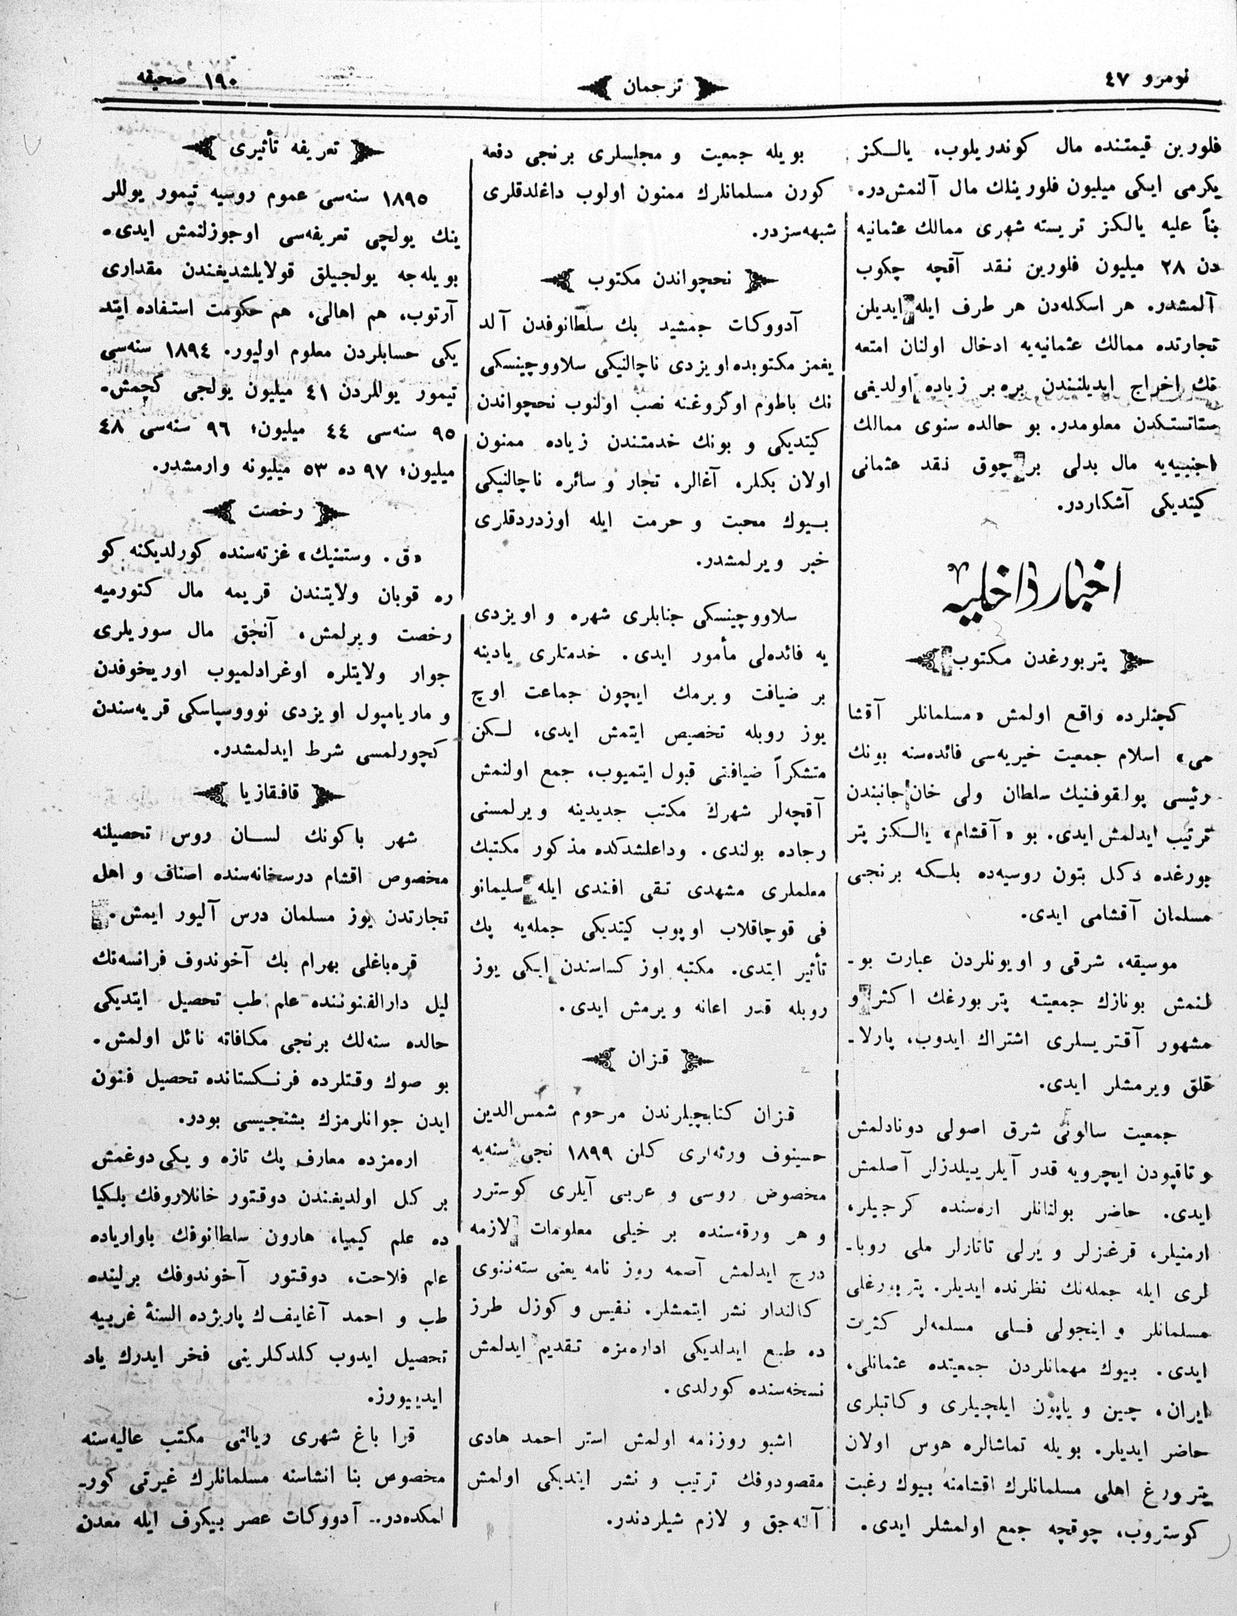 نومرو ٤٧
ترجمان
١٩٠ صحیفه
فلورین قیمتنده مال کوندریلوب، یالکز
یکرمی ایکی میلیون فلورینلك مال آلنمش‌در.
بناً علیه یالکز تریسته شهری ممالك عثمانیه
دن ٢٨ میلیون فلورین نقد آقچه چکوب
آلمشدر. هر اسکله‌دن هر طرف ایله ایدیلن
تجارتده ممالك عثمانیه‌یه ادخال اولنان امتعه
نك اخراج ایدیلنندن بره‌بر زیاده اولدیغی
ستاتستکدن معلومدر. بو حالده سنوی ممالك
اجنبییه‌یه مال بدلی بر چوق نقد عثمانی
کیتدیکی آشکاردر.
اخبار داخلیه
پتربورغدن مکتوب
کچنلرده واقع اولمش «مسلمانلر آقشا
می» اسلام جمعیت خیریه‌سی فائده‌سنه بونك
رئیسی پولقوفنیك سلطان ولی خان جانبندن
ترتیب ایدلمش ایدی. بو «آقشام» یالکز پتر
بورغده دکل بتون روسیه‌ده بلکه برنجی
مسلمان آقشامی ایدی.
موسیقه، شرقی و اویونلردن عبارت بو-
لنمش بونازك جمعیته پتربورغك اکثر و
مشهور آقتریسلری اشتراك ایدوب، پارلا-
قلق ویرمشلر ایدی.
جمعیت سالونی شرق اصولی دونادلمش
و تاقپودن ایچرویه قدر آیلر ییلدزلر آصلمش
ایدی. حاضر بولنانلر اره‌سنده کرجیلر،
ارمنیلر، قرغزلر و یرلی تاتارلر ملی روبا-
لری ایله جمله‌نك نظرنده ایدیلر. پتربورغلی
مسلمانلر و اینجولی فسلی مسلمه‌لر کثرت
ایدی. بیوك مهمانلردن جمعیتده عثمانلی،
ایران، چین و یاپون ایلچیلری و کاتبلری
حاضر ایدیلر. بویله تماشالره هوس اولان
پتربورغ اهلی مسلمانلرك اقشامنه بیوك رغبت
کوستروب، چوقچه جمع اولمشلر ایدی.
بویله جمعیت و مجلسلری برنجی دفعه
کورن مسلمانلرك ممنون اولوب داغلدقلری
شبهه‌سزدر.
نحچواندن مکتوب
آدووکات جمشید بك سلطانوفدن آلد
یغمز مکتوبده اویزدی ناچالنیکی سلاووچینسکی
نك باطوم اوکروغنه نصب اولنوب نحچواندن
کیتدیکی و بونك خدمتندن زیاده ممنون
اولان بکلر، آغالر، تجار و سائره ناچالنیکی
بیوك محبت و حرمت ایله اوزدردقلری
خبر ویرلمشدر.
سلاووچینسکی جنابلری شهره و اویزدی
یه فائده‌لی مأمور ایدی. خدمتلری یادینه
بر ضیافت ویرمك ایچون جماعت اوچ
یوز روبله تخصیص ایتمش ایدی، لکن
متشکراً ضیافتی قبول ایتمیوب، جمع اولنمش
آقچه‌لر شهرك مکتب جدیدینه ویرلمسنی
رجاده بولندی. وداعلشدکده مذکور مکتبك
معلملری مشهدی تقی افندی ایله سلیمانو
فی قوچاقلاب اوپوب کیتدیکی جمله‌یه پك
تأثیر ایتدی. مکتبه اوز کساسندن ایکی یوز
روبله قدر اعانه ویرمش ایدی.
قزان
قزان کتابچیلرندن مرحوم شمس‌الدین
حسینوف ورثه‌لری کلن ١٨٩٩ نجی سنه‌یه
مخصوص روسی و عربی آیلری کوسترر
و هر ورقه‌سنده بر خیلی معلومات لازمه
درج ایدلمش آصمه روز نامه یعنی سته‌ننوی
کالندار نشر ایتمشلر. نفیس و کوزل طرز
ده طبع ایدلدیکی اداره‌مزه تقدیم ایدلمش
نسخه‌سنده کورلدی.
اشبو روزنامه اولمش استر احمد هادی
مقصودوفك ترتیب و نشر ایتدیکی اولمش
آلنه‌جق و لازم شیلردندر.
تعریفه تأثیری
١٨٩٥ سنه‌سی عموم روسیه تیمور یوللر
ینك یولچی تعریفه‌سی اوجوزلنمش ایدی.
بویله‌جه یولجیلق قولایلشدیغندن مقداری
آرتوب، هم اهالی، هم حکومت استفاده ایتد
یکی حسابلردن معلوم اولیور. ١٨٩٤ سنه‌سی
تیمور یوللردن ٤١ میلیون یولجی کچمش.
٩٥ سنه‌سی ٤٤ میلیون؛ ٩٦ سنه‌سی ٤٨
میلیون؛ ٩٧ ده ٥٣ میلیونه وارمشدر.
رخصت
«ق. وستنیك» غزته‌سنده کورلدیکنه کو
ره قوبان ولایتندن قریمه مال کتورمیه
رخصت ویرلمش، آنجق مال سوریلری
جوار ولایتلره اوغرادلمیوب اوریخوفدن
و ماریامپول اویزدی نوووسپاسکی قریه‌سندن
کچورلمسی شرط ایدلمشدر.
قافقازیا
شهر باکونك لسان روس تحصیلنه
مخصوص اقشام درسخانه‌سنده اصناف و اهل
تجارتدن یوز مسلمان درس آلیور ایمش.
قره‌باغلی بهرام بك آخوندوف فرانسه‌نك
لیل دارالفنوننده علم طب تحصیل ایتدیکی
حالده سنه‌لك برنجی مکافاته نائل اولمش.
بو صوك وقتلرده فرنکستانده تحصیل فنون
ایدن جوانلرمزك بشنجیسی بودر.
اره‌مزده معارف پك تازه و یکی دوغمش
بر کل اولدیغندن دوقتور خانلاروفك بلکیا
ده علم کیمیا، هارون سلطانوفك باواریاده
علم فلاحت، دوقتور آخوندوفك برلینده
طب و احمد آغایف‌ك پاریزده السنۀ غربیه
تحصیل ایدوب کلدکلرینی فخر ایدرك یاد
ایدییورز.
قرا باغ شهری ریالنی مکتب عالیه‌سنه
مخصوص بنا انشاسنه مسلمانلرك غیرتی کور-
لمکده‌در. آدووکات عصر بیکرف ایله معدن